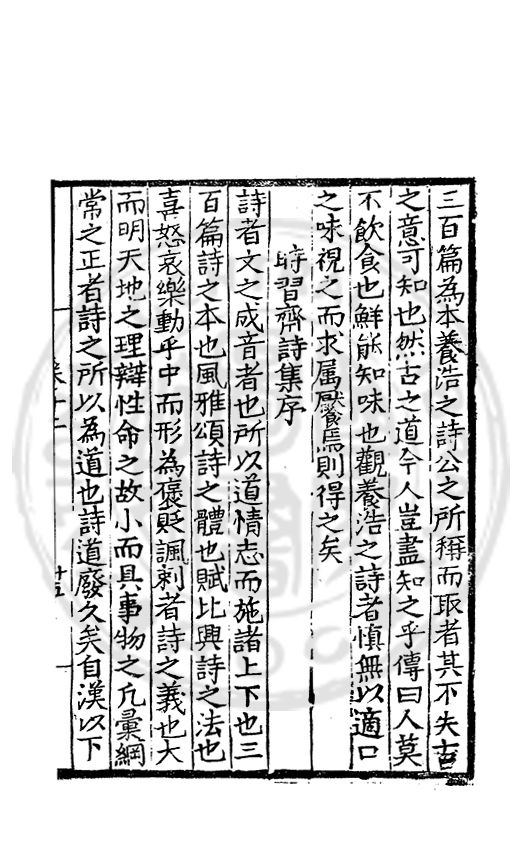 三百篇為本養浩之詩公之所稱而取者其不失古
之意可知也然古之道今人豈盡知之乎傳曰人莫
不飲食也鮮能知味也觀養浩之詩者慎無以適口
之味視之而求屬饜焉則得之矣
時習齋詩集序
詩者文之成音者也所以道情志而施諸上下也三
百篇詩之本也風雅頌詩之體也賦比興詩之法也
喜怒哀樂動乎中而形為褒貶諷刺者詩之義也大
而明天地之理辯性命之故小而具事物之凡彙綱
常之正者詩之所以為道也詩道廢久矣自漢以下
卷十二
十五